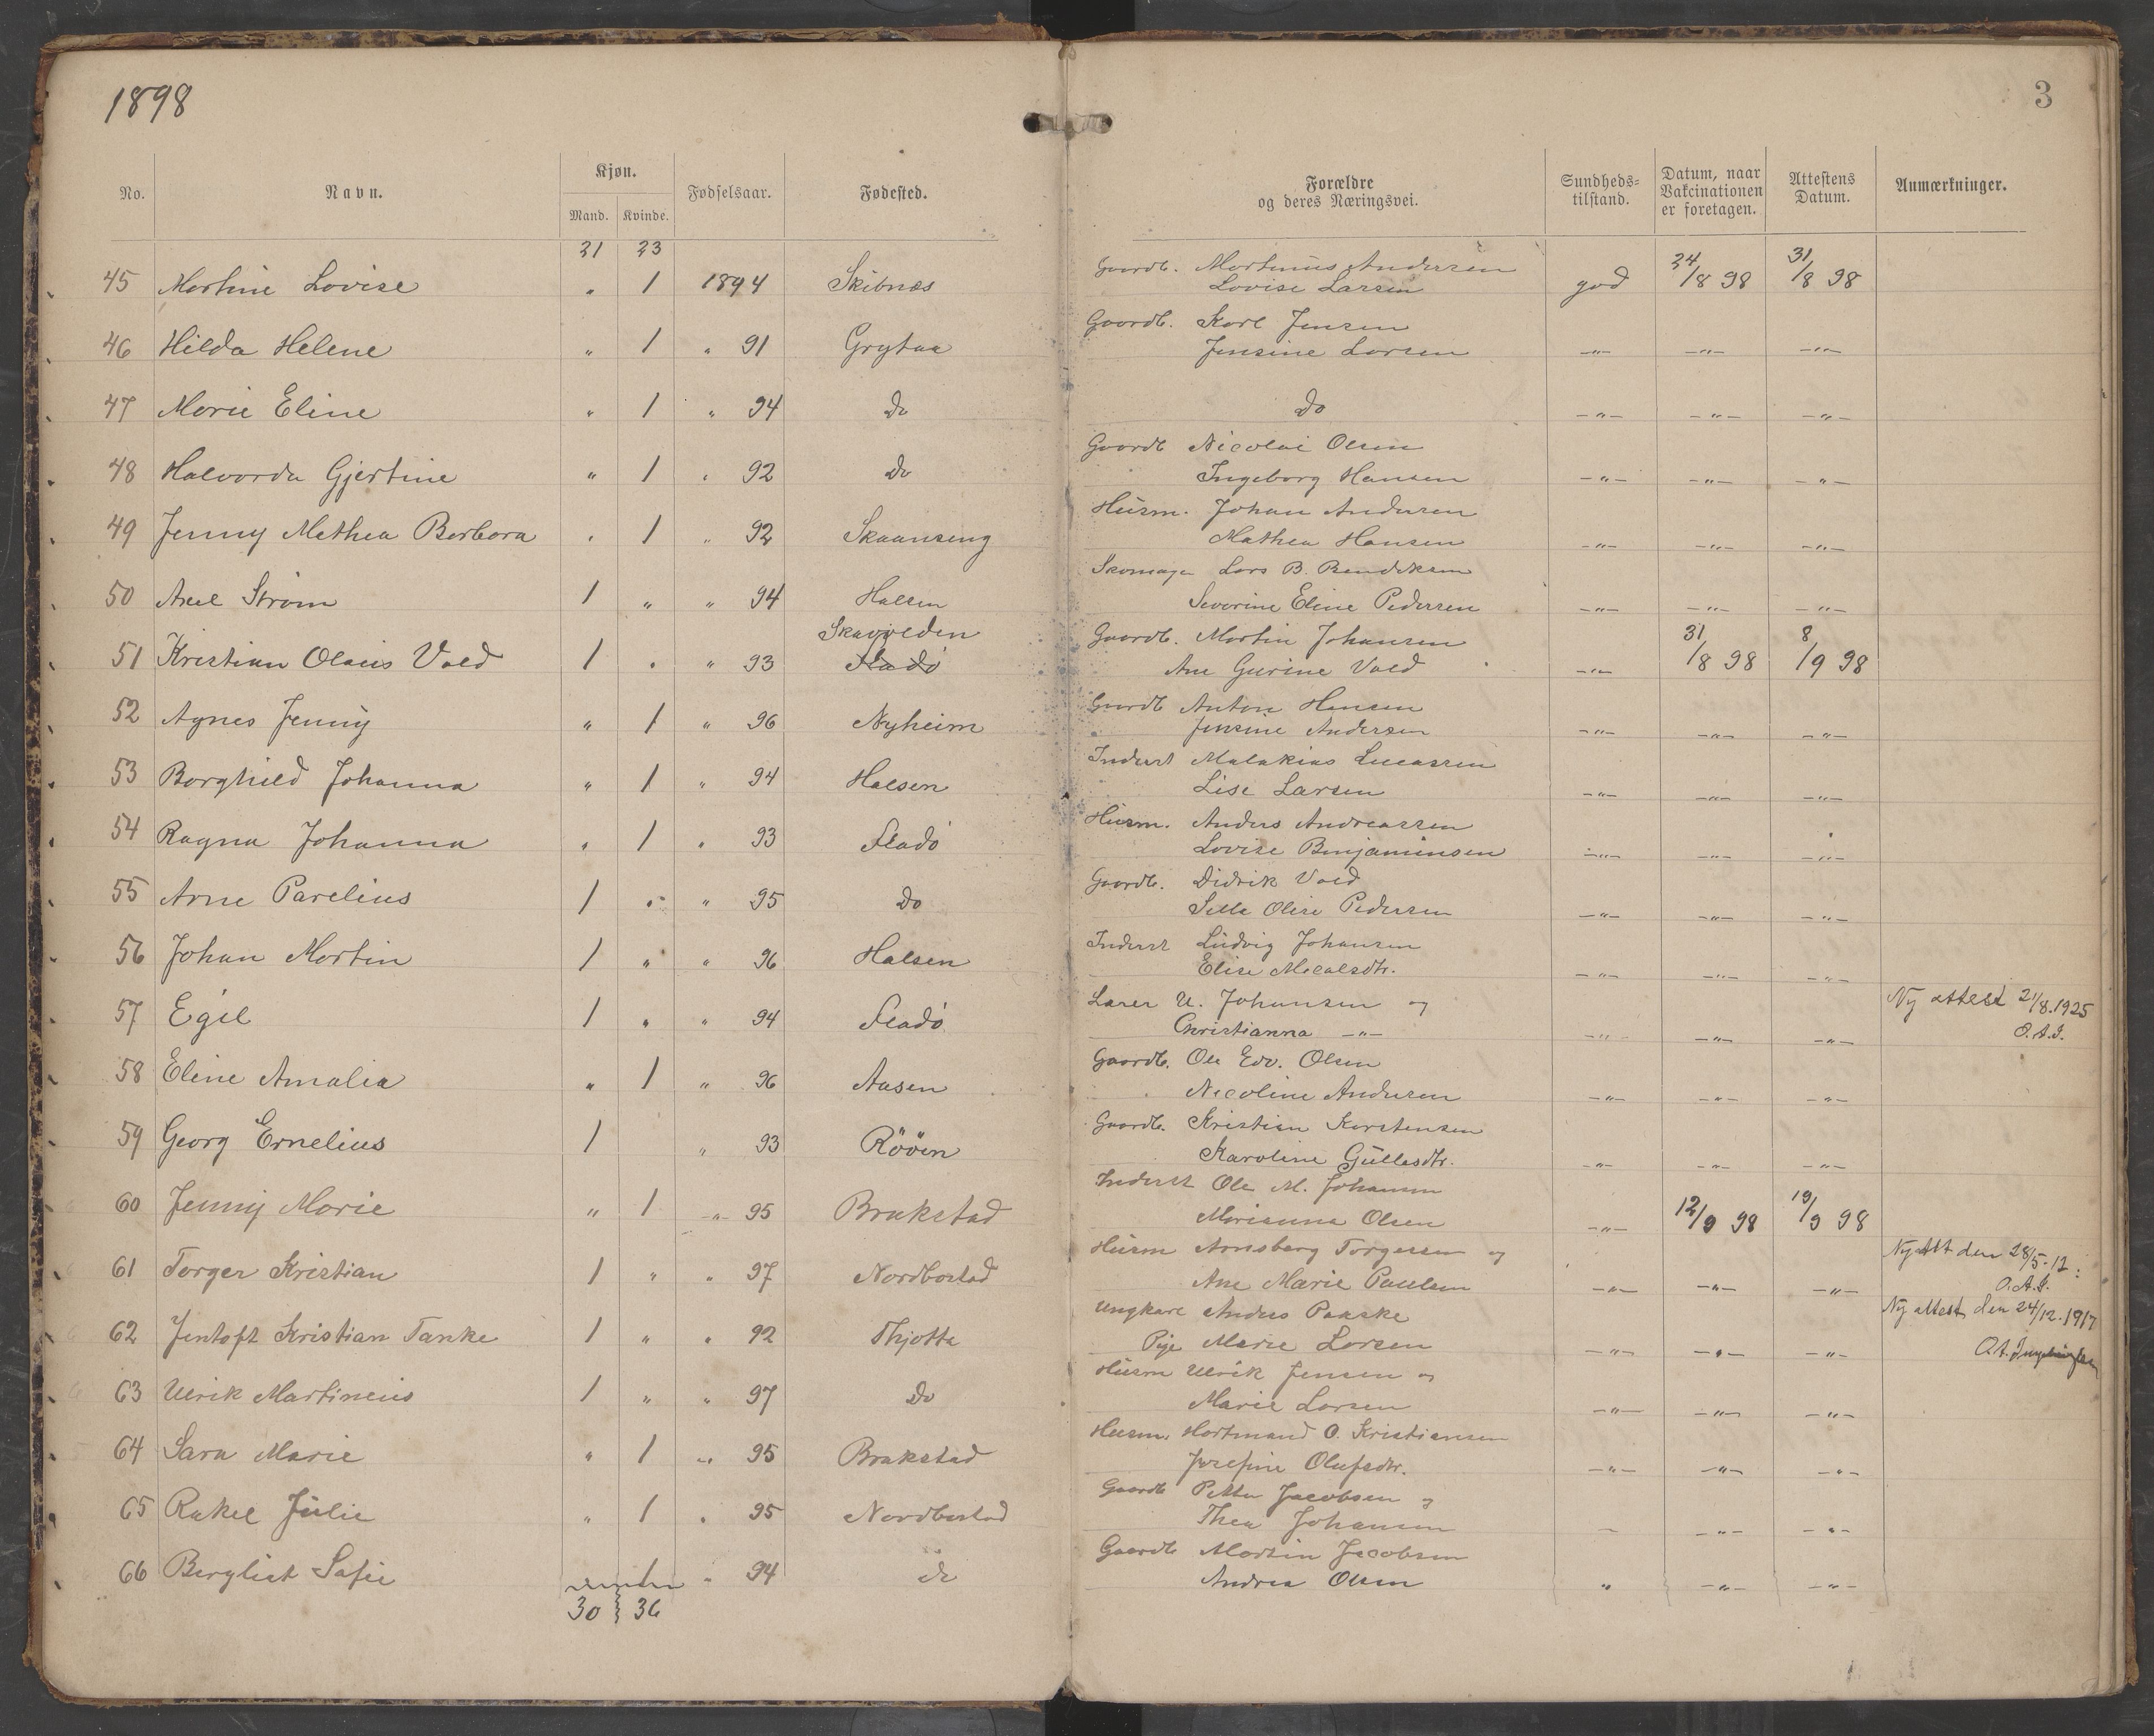 1898
3
No. Navn. Kjøn. Mand. Kvinde. Fødselsaar. Fødested. Forældre og deres Næringsvei. Sundheds-tilstand. Datum, naar Vakcinationen er foretagen. Attestens Datum. Anmærkninger.
21 23
Gaardb. Martinus Andersen
45 Martine Lovise " 1 1894 Skibnæs Lovise Larsen god 24/8 98 31/8 98
Gaardb. Karl Jensen
46 Hilda Helene " 1 " 91 Grytaa Jensine Larsen -"- -"- -"-
47 Marie Eline " 1 " 94 Do Do -"- -"- -"-
Gaardb Nicolai Olsen
48 Halvorda Gjertine " 1 " 92 Do Ingeborg Hansen -"- -"- -"-
Husm. Johan Andersen
49 Jenny Mathea Barbara " 1 " 92 Skaanseng Mathea Hansen -"- -"- -"-
Skomager Lars B. Bendiksen
50 Axel Strøm 1 " " 94 Halsen Severine Eline Pedersen -"- -"- -"-
Skavolden Gaardb. Martin Johansen
51 Kristian Olaus Vold 1 " " 93 Fladö Ane Gurine Vold -"- 31/8 98 8/9 98
Gaardb Anton Hansen
52 Agnes Jenny " 1 " 96 Nyheim Jensine Andersen -"- -"- -"-
Inderst Malakias Lucassen
53 Borghild Johanna " 1 " 94 Halsen Lise Larsen -"- -"- -"-
Husm. Anders Andreassen
54 Ragna Johanna " 1 " 93 Fladö Lovise Benjaminsen -"- -"- -"-
Gaardb. Didrik Vold
55 Arne Parelius 1 " " 95 Do Olise Pedersen -"- -"- -"-
Inderst Ludvig Johansen
56 Johan Martin 1 " " 96 Halsen Elise -"- -"- -"-
Lærer U. Johansen og Ny attest 21/8.1925
57 Egil 1 " " 94 Fladö Christianna -"- -"- -"- -"- O.A.I.
Gaardb. Ole Edv. Olsen
58 Eline Amalia " 1 " 96 Aasen Nicoline Andersen -"- -"- -"-
Gaardb. Kristian Korstensen
59 Georg Ernelius 1 " 93 Rööen Karoline Gullesdtr. -"- -"- -"-
Inderst Ole M. Johansen
60 Jenny Marie " 1 -"- 95 Brakstad Marianna Olsen -"- 12/9 98 19/9 98
Husm Arnsberg Torgersen og Ny Att den 28/5-12:
61 Torger Kristian 1 " " 97 Nordbostad Ane Marie Paulsen -"- -"- -"- O.A.I.
Ungkarl Anders Paaske Ny attest den 24/12.1917
62 Jentoft Kristian Tanke 1 " " 92 Thjotta Pige Marie Larsen -"- -"- -"-
Husm Ulrik Jensen og
63 Ulrik Martineus 1 " " 97 Do Marie Larsen -"- -"- -"-
Husm. Hartmand O. Kristiansen
64 Sara Marie " 1 " 95 Brakstad Josefine Olufsdtr. -"- -"- -"-
Gaardb Petter Jacobsen og
65 Rakel Julie " 1 " 95 Nordbostad Thea Johansen - -"- -"-
Gaardb Martin Jacobsen
66 Bergliot Sofie 1 " 94 do Andrea Olsen " -"- -"-
30 36